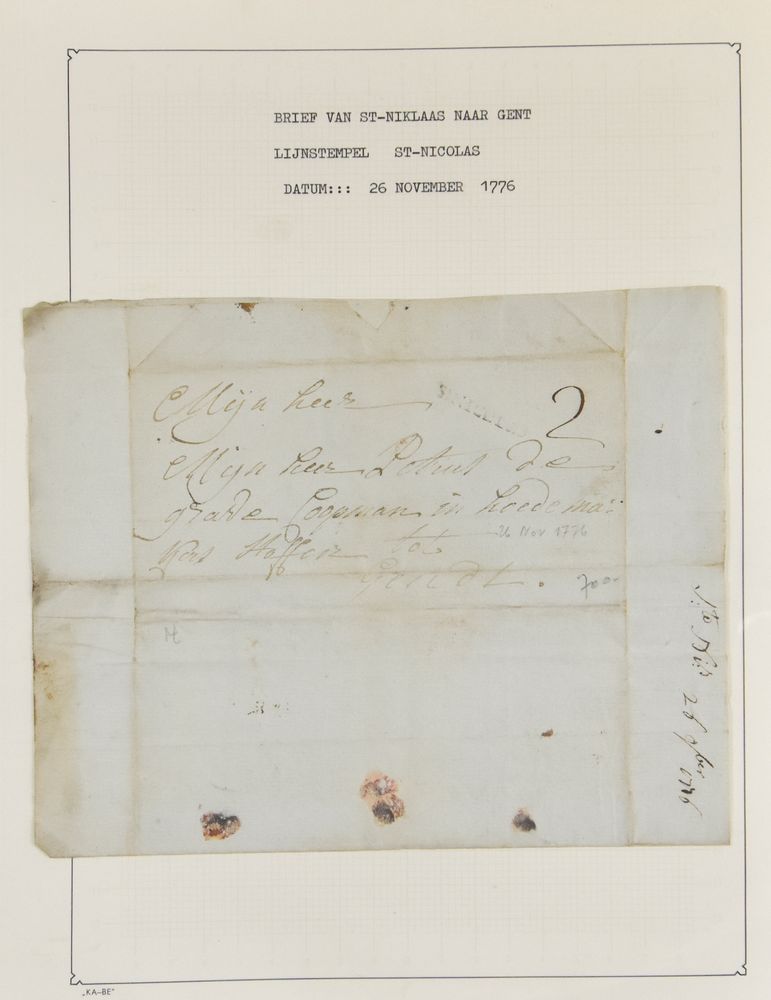 BRIEF VAN ST-NIKLAAS NAAR GENT
LIJNSTEMPEL ST-NICOLAS
DATUM::: 26 NOVEMBER 1776
Mijn heer
2
Mijn heer de
grave Coopman in hoedema:
kers tot
26 Nov 1776
Gendt.
700-
26 9ber 1776
„KA-BE"